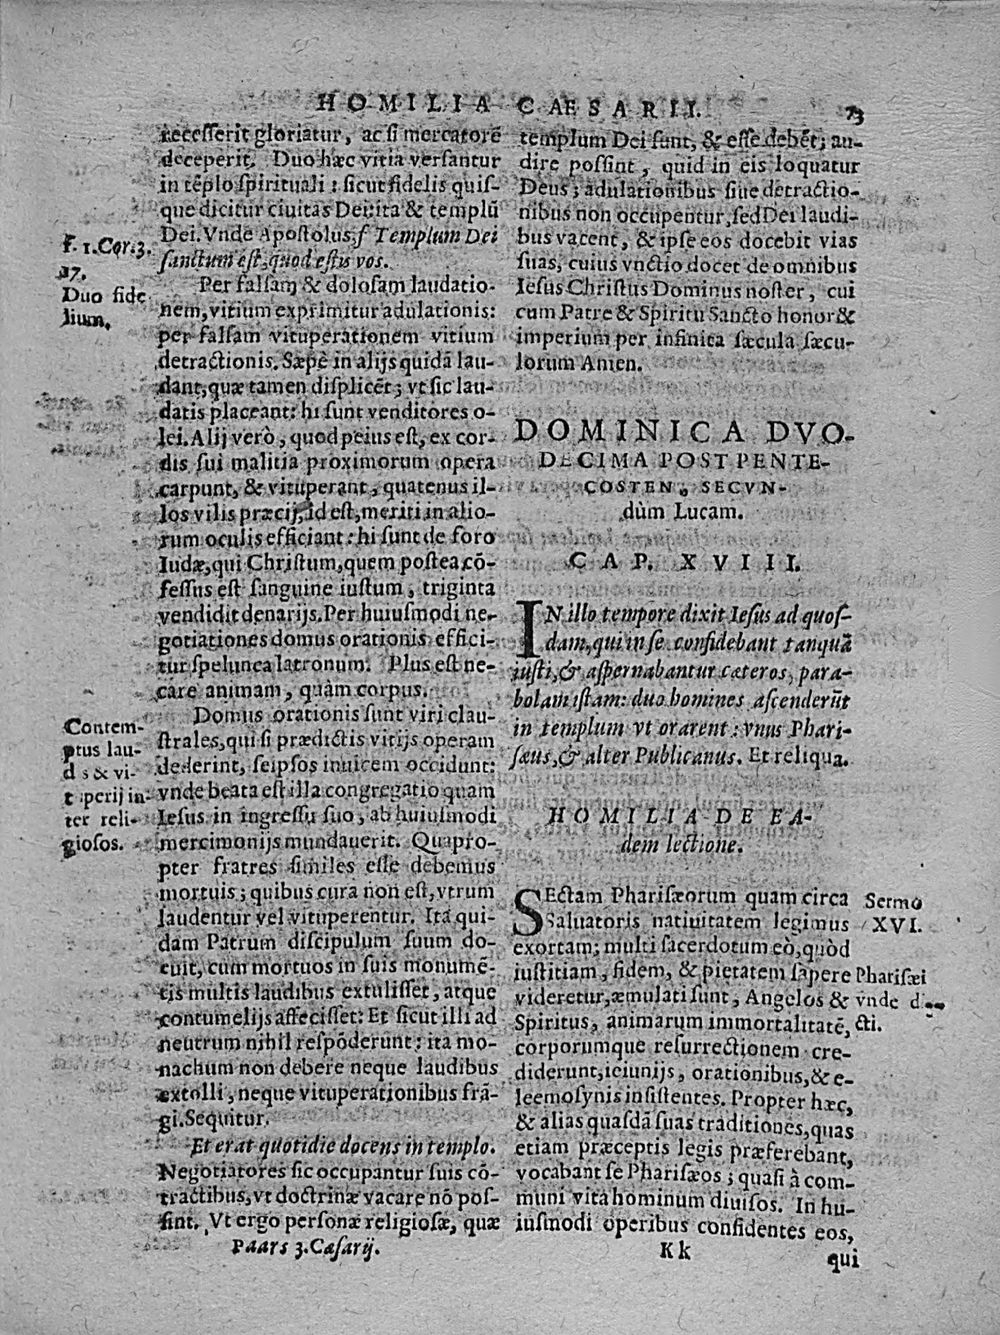 HOMILIA CAESARII. 73
recesserit gloriatur, ac si mercatorē
deceperit. Duo hæc vitia versantur
in tēplo spirituali: sicut fidelis quiſ-
que dicitur ciuitas Dei: ita & templū
Dei. Vnde Apostolus, f Templum Dei
ſanctum eſt, quod eſtis vos.
f. 1. Cor. 3.
17.
Per falſam & doloſam laudatio-
nem, vitium exprimitur adulationis:
per falſam vituperationem vitium
detractionis. Sæpè in alijs quidā lau-
dant, quæ tamen diſplicēt; vt ſic lau-
datis placeant: hi ſunt venditores o-
lei. Alij verò, quod peius eſt, ex cor-
dis ſui malitia proximorum opera
carpunt, & vituperant, quatenus il-
los vilis præcij, id eſt, meriti in alio-
rum oculis efficiant: hi ſunt de foro
Iudæ, qui Chriſtum, quem poſtea cō-
feſſus eſt ſanguine iuſtum, triginta
vendidit denarijs. Per huiuſmodi ne-
gotiationes domus orationis effici-
tur ſpelunca latronum. Plus eſt ne-
care animam, quàm corpus.
Duo fide
lium.
Domus orationis ſunt viri clau-
ſtrales, qui ſi prædictis vitijs operam
dederint, ſeipſos inuicem occidunt:
vnde beata eſt illa congregatio quam
Ieſus in ingreſſu ſuo, ab huiuſmodi
mercimonijs mundauerit. Quapro-
pter fratres ſimiles eſſe debemus
mortuis; quibus cura non eſt, vtrum
laudentur vel vituperentur. Ita qui-
dam Patrum diſcipulum ſuum do-
cuit, cum mortuos in ſuis monumē-
tis multis laudibus extuliſſet, atque
contumelijs affeciſſet: Et ſicut illi ad
neutrum nihil reſpōderunt: ita mo-
nachum non debere neque laudibus
extolli, neque vituperationibus frā-
gi. Sequitur.
Contem-
ptus lau-
d s & vi-
t perij in-
ter reli-
gioſos.
Et erat quotidie docens in templo.
Negotiatores ſic occupantur ſuis cō-
tractibus, vt doctrinæ vacare nō poſ-
ſint. Vt ergo perſonæ religioſæ, quæ
Paars 3. Cæſarij.
templum Dei ſunt, & eſſe debēt; au-
dire poſſint, quid in eis loquatur
Deus; adulationibus ſiue detractio-
nibus non occupentur, ſed Dei laudi-
bus vacent, & ipſe eos docebit vias
ſuas, cuius vnctio docet de omnibus
Ieſus Chriſtus Dominus noſter, cui
cum Patre & Spiritu Sancto honor &
imperium per infinita ſæcula ſæcu-
lorum Amen.
DOMINICA DVO-
DECIMA POST PENTE-
COSTEN, SECVN-
dùm Lucam.
CAP. XVIII.
IN illo tempore dixit Ieſus ad quoſ-
dam, qui in ſe confidebant tanquā
iuſti, & aſpernabantur cæteros, para-
bolam iſtam: duo homines aſcenderūt
in templum vt orarent: vnus Phari-
ſæus, & alter Publicanus. Et reliqua.
HOMILIA DE EA-
dem lectione.
SEctam Phariſæorum quam circa
Saluatoris natiuitatem legimus
exortam; multi ſacerdotum eò, quòd
iuſtitiam, fidem, & pietatem ſapere
videretur, æmulati ſunt, Angelos &
Spiritus, animarum immortalitatē,
corporumque reſurrectionem cre-
diderunt, ieiunijs, orationibus, & e-
leemoſynis inſiſtentes. Propter hæc,
& alias quaſdā ſuas traditiones, quas
etiam præceptis legis præferebant,
vocabant ſe Phariſæos; quaſi à com-
muni vita hominum diuiſos. In hu-
iuſmodi operibus confidentes eos,
Sermo
XVI.
Phariſæi
vnde d
cti.
Kk
qui